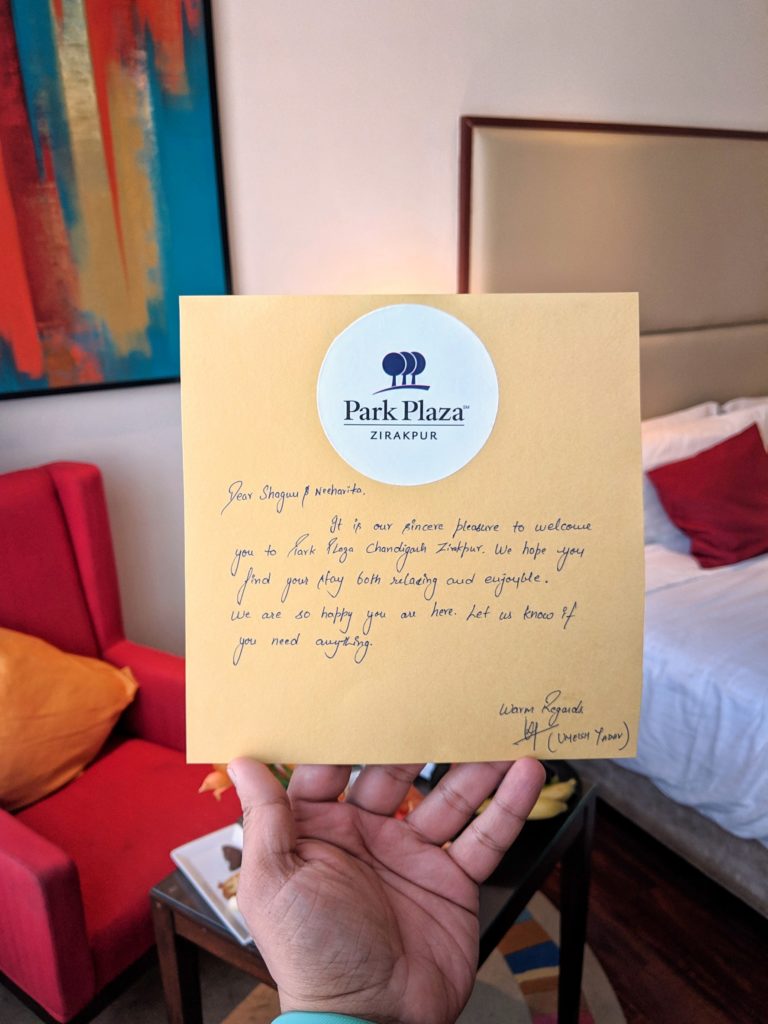 Park Plaza SM
ZIRAKPUR
Dear Shagun & Neeharita,
It is our sincere pleasure to welcome
you to Park Plaza Chandigarh Zirakpur. We hope you
find your stay both relaxing and enjoyble.
We are so happy you are here. Let us know if
you need anything.
Warm Regards
(UMESH YADAV)